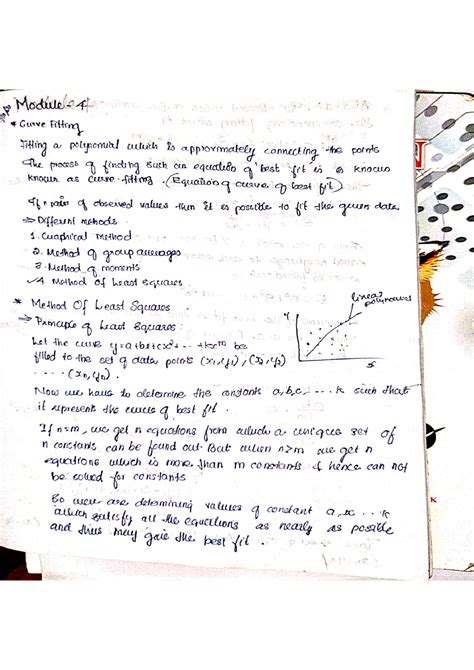 Module - 4
* Curve Fitting
Fitting a polynomial which is approximately connecting the points
The process of finding such an equation of 'best fit is is known
known as curve-fitting. (Equation of curve of best fit).
If n pair of observed values then it is possible to fit the given data
⇒ Different methods.
1. Graphical method
2. Method of group averages
3. Method of moments
✓4 Method of least squares
* Method Of Least Squares
linear
polynomial
⇒ Principle of Least Squares:
Y
Let the curve y=a+bx+cx²+ ---+kx^m be
filled to the set of data points (x₁,y₁), (x₂,y₂)
.... (xₙ,yₙ)
x
Now we have to determine the constants a,b,c,... k such that
it represent the curve of best fit.
If n=m, we get n equations from which a unique set of
n constants can be found out. But when n>m we get n
equations which is more than m constants & hence can not
be solved for constants
So we are determining values of constant a,b ... k
which satisfy all the equations as nearly as possible
and thus may give the best fit.